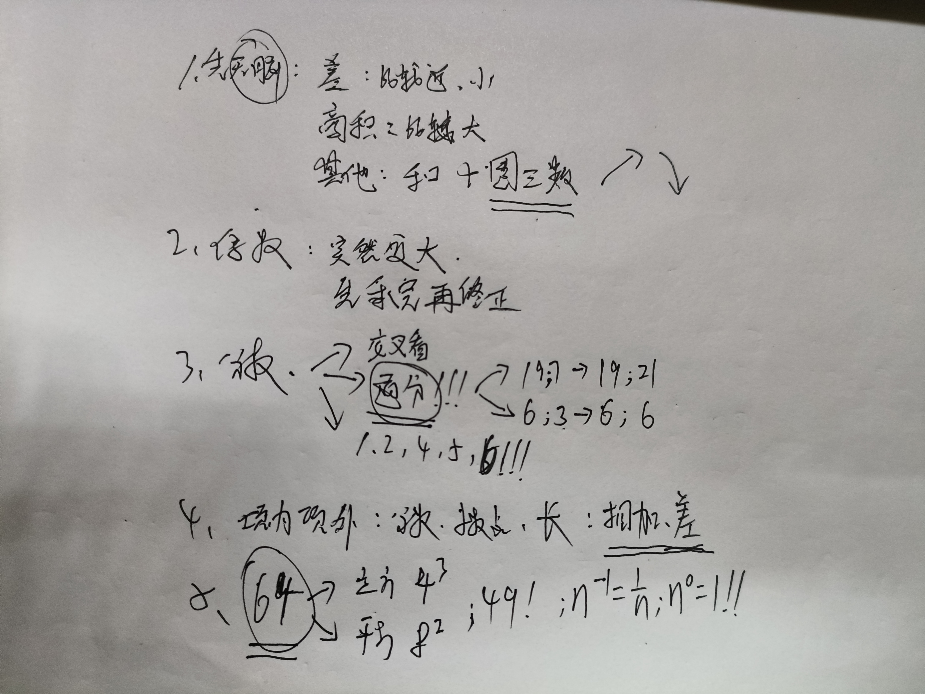 1、先观察：差：比较近、小
商积：比较大
其他：和 + 圈三数
2、倍数：突然变大.
先乘完再修正
3、分数. 交叉看
两分!!! 19;7→19;21
6;3→6;6
1、2,4,5,6!!!
4、项内项外：分数、拨点、长：相加、差
5、64 → 立方 4³ ;49! ;n⁻¹=1/n;n⁰=1!!!
平方 8²